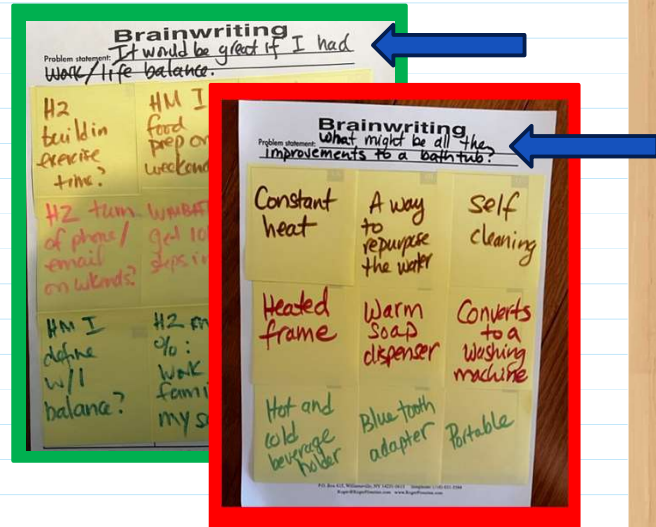 Brainwriting
Problem statement: It would be great if I had
Work/life balance.
H2
build in
exercise
time?
HM I
food
prep on
weekend
H2 turn
of phone/
email
on wkends?
WMBAT
get 10
steps in
HM I
define
w/l
balance?
H2
%:
work
fami
my s
Brainwriting
Problem statement: What might be all the
improvements to a bath tub?
Constant
heat
A way
to
repurpose
the water
Self
cleaning
Heated
frame
Warm
Soap
dispenser
Converts
to a
Washing
machine
Hot and
cold
beverage
holder
Blue tooth
adapter
Portable
P.O. Box 615, Williamsville, NY 14231-0615